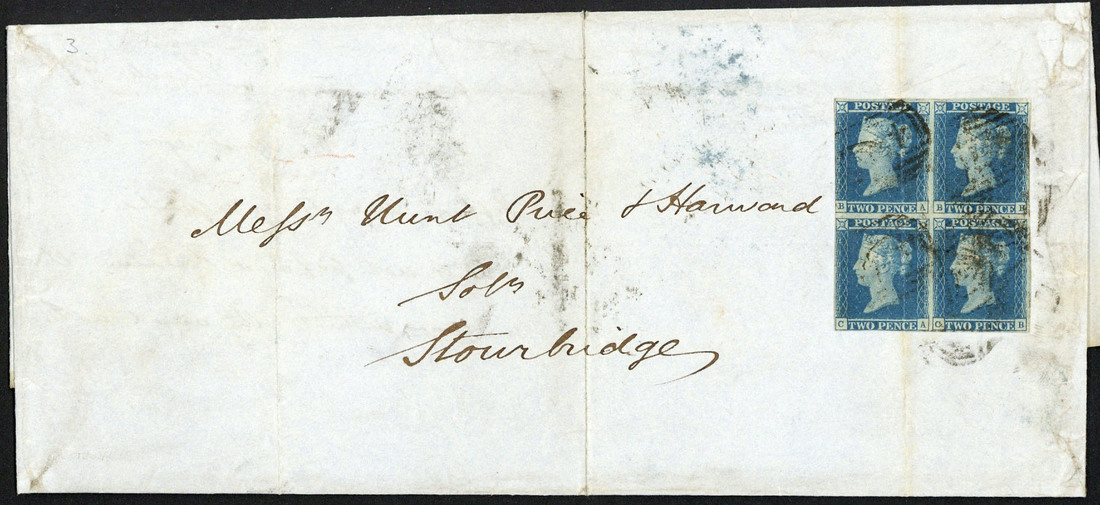 3.
POSTAGE POSTAGE
B TWO PENCE A B TWO PENCE B
Messrs Hunt Price & Harward
POSTAGE POSTAGE
Solrs
C TWO PENCE A C TWO PENCE B
Stourbridge